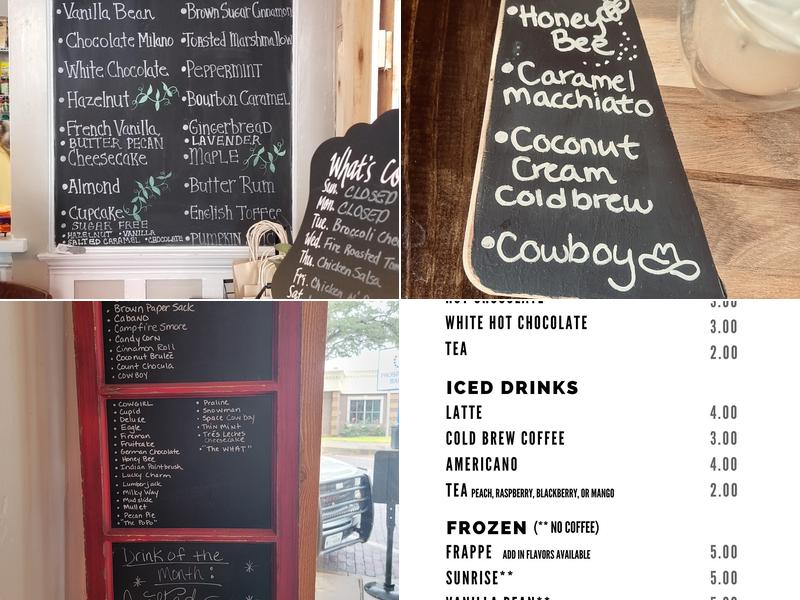 •Vanilla Bean
•Chocolate Milano
•White Chocolate
•Hazelnut
•French Vanilla
•BUTTER PECAN
•Cheesecake
•Almond
•Cupcake
•SUGAR FREE
HAZELNUT •VANILLA
SALTED CARAMEL •CHOCOLATE
•Brown Sugar Cinnamon
•Toasted Marshmallow
•PEPPERMINT
•Bourbon CARAMEL
•Gingerbread
•LAVENDER
•MAPLE
•Butter Rum
•English Toffee
•PUMPKIN
What's
Sun. CLOSED
Mon. CLOSED
Tue. Broccoli
Wed. Fire Roasted
Thu. Chicken Salsa
Fri. Chicken
Sat.
•Honey
Bee
•Caramel
macchiato
•Coconut
Cream
Coldbrew
•Cowboy
• Brown Paper Sack
• CabaNO
• Campfire Smore
• Candy Corn
• Cinnamon Roll
• Coconut Brulee
• Count Chocula
• COWBOY
• COWGIRL
• Cupid
• Deluxe
• Eagle
• Fireman
• Fruitcake
• German Chocolate
• Honey Bee
• Indian Paintbrush
• Lucky Charm
• Lumberjack
• Milky Way
• Mudslide
• Mullet
• Pecan Pie
• "The PoPo"
• Praline
• Snowman
• Space Cowboy
• Thin Mint
• Trés Leches
Cheesecake
• "The WHAT"
Drink of the
Month:
HOT CHOCOLATE 3.00
WHITE HOT CHOCOLATE 3.00
TEA 2.00
ICED DRINKS
LATTE 4.00
COLD BREW COFFEE 3.00
AMERICANO 4.00
TEA PEACH, RASPBERRY, BLACKBERRY, OR MANGO 2.00
FROZEN (** NO COFFEE)
FRAPPE ADD IN FLAVORS AVAILABLE 5.00
SUNRISE** 5.00
VANILLA BEAN** 5.00